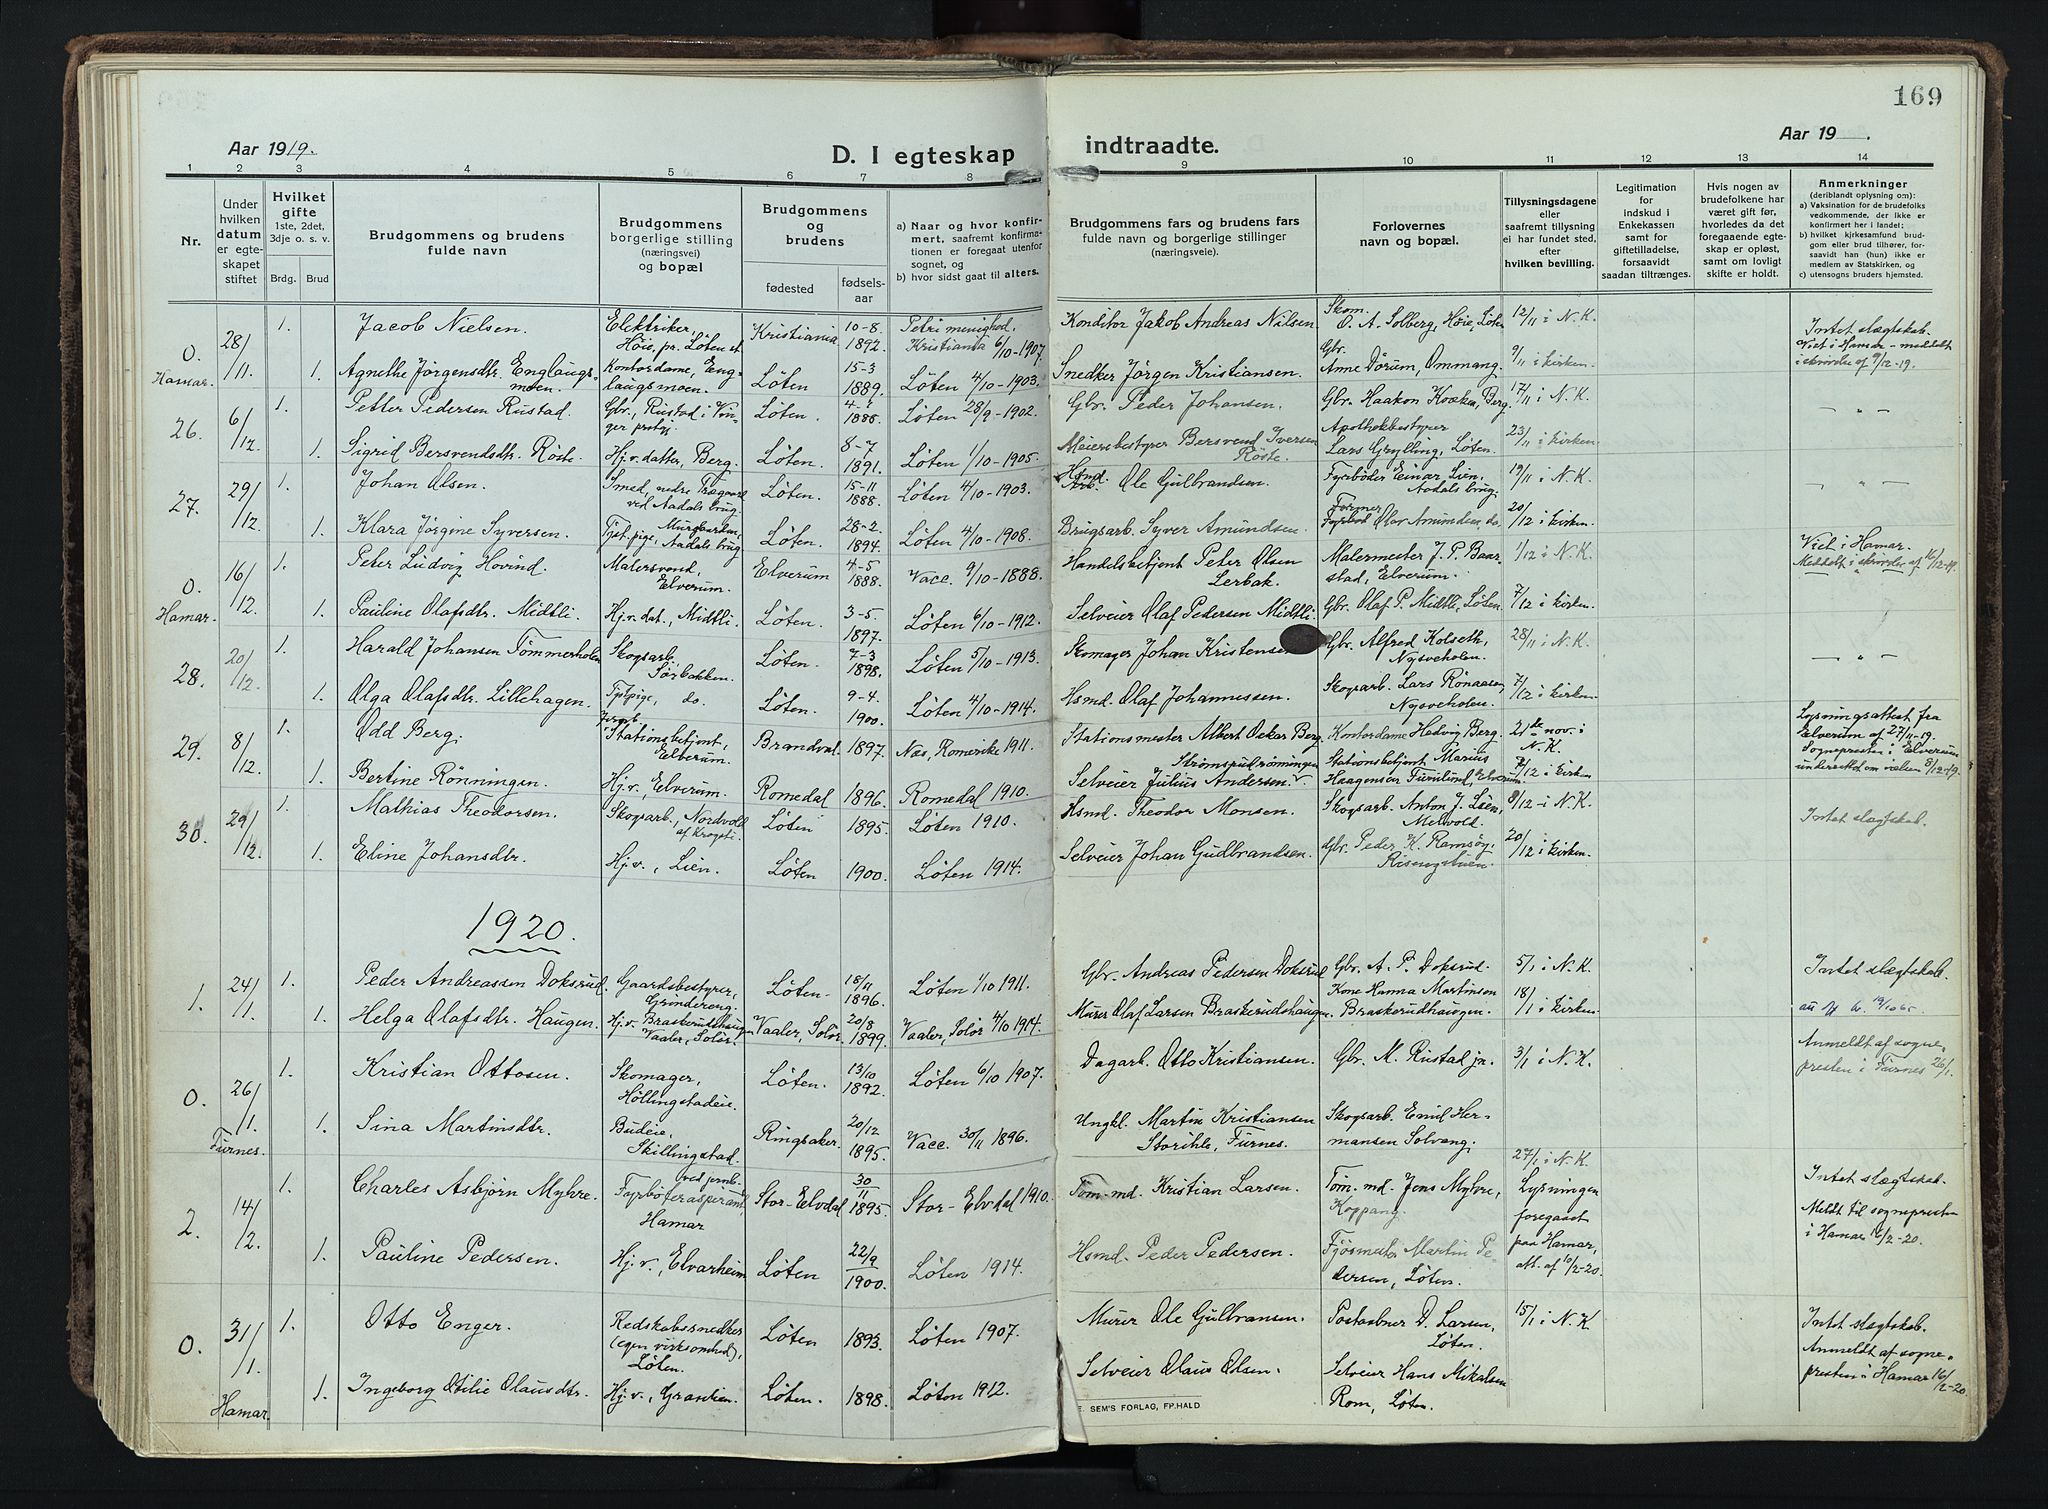 169
Aar 1919.
D. I egteskap indtraadte.
Aar 19 .
1 2 3 4 5 6 7 8 9 10 11 12 13 14
Nr.
Under hvilken datum er egteskapet stiftet
Hvilket gifte 1ste, 2det, 3dje o. s. v.
Brdg. Brud
Brudgommens og brudens fulde navn
Brudgommens borgerlige stilling (næringsvei) og bopæl
Brudgommens og brudens
fødested fødselsaar
a) Naar og hvor konfirmert, saafremt konfirmationen er foregaat utenfor sognet, og
b) hvor sidst gaat til alters.
Brudgommens fars og brudens fars fulde navn og borgerlige stillinger (næringsveie).
Forlovernes navn og bopæl.
Tillysningsdagene eller saafremt tillysning ei har fundet sted, efter hvilken bevilling.
Legitimation for indskud i Enkekassen samt for giftetilladelse, forsaavidt saadan tiltrænges.
Hvis nogen av brudefolkene har været gift før, hvorledes da det foregaaende egteskap er opløst, samt om lovligt skifte er holdt.
Anmerkninger
(deriblandt oplysning om:
a) Vaksination for de brudefolks vedkommende, der ikke er konfirmert her i landet;
b) hvilket kirkesamfund brudgom eller brud tilhører, forsaavidt han (hun) ikke er medlem av Statskirken, og
c) utensogns bruders hjemsted.
0. Hamar. 28/11. 1. Jacob Nielsen. Elektriker, Høie, pr. Løten st. Kristiania 10-8. 1892. Petri menighed, Kristiania 6/10-1907. Konditor Jakob Andreas Nilsen. Skom. O. A. Solberg, Høie, Løten 12/11 i N. K. Intet slægtskab. Viet i Hamar - meddelt i skrivelse af 9/12-19.
1. Agnethe Jörgensdtr. Englaugsmoen. Kontordame, Englaugsmoen. Løten 15-3 1889. Løten 4/10-1903. Snedker Jörgen Kristiansen. Gbr. Arne Dørum, Ommang. 9/11 i kirken.
26. 6/12. 1. Petter Pedersen Rustad. Gbr., Rustad i Vinger prstgj. Løten. 1888. Løten 28/9-1902. Gbr. Peder Johansen. Gbr. Haakon Kvæken, Berg. 17/11 i N. K.
1. Sigrid Bersvendsdtr. Röste. Hj.v. datter, Berg. Løten. 8-7 1891. Løten 1/10-1905. Meieribestyrer Bersvend Iversen Röste. Apothekbestyrer Lars Grylling, Løten. 23/11 i kirken.
27. 29/12. 1. Johan Olsen. Smed, nedre ved Aadals brug. Løten. 15-11 1888. Løten 4/10-1903. Hsmd. Ole Gulbrandsen. Fyrbøder Einar Lien, Aadals brug. 19/11 i N. K.
1. Klara Jörgine Syversen. Tjst.pige, Aadals brug Løten. 28-2. 1894. Løten 4/10-1908. Brugsarb. Syver Amundsen. Former Olav Amundsen, do. 20/12 i kirken.
0. Hamar. 16/12. 1. Peter Ludvig Hovind. Malersvend, Elverum. Elverum 4-5 1888. Vacc. 9/10-1888. Handelsbetjent Peter Olsen Lerbak. Malermester J. P. Baarstad, Elverum. 1/12 i N. K. Viet i Hamar. Meddelt i skrivelse af 16/12-19.
1. Pauline Olafsdtr. Midtli. Hj.v. dat., Midtli. Løten 3-5. 1897. Løten 6/10-1912. Selveier Olaf Pedersen Midtli. Gbr. Olaf P. Midtli, Løten. 7/12 i kirken.
28. 20/12. 1. Harald Johansen Tömmerholen Skogsarb. Sørbakken. Løten. 7-3 1898. Løten 5/10-1913. Skomager Johan Kristensen Gbr. Alfred Kolseth, Nysveholen. 28/11 i N. K.
1. Olga Olafsdtr. Lillehagen. Tjst.pige, do. Løten. 9-4. 1900. Løten 4/10-1914. Hsmd. Olaf Johannessen. Skogsarb. Lars Rönaasen, Nysveholen. 7/12 i kirken.
29. 8/12. 1. Odd Berg. Stationsbetjent, Elverum. Brandval 1897. Nes, Romerike 1911. Stationsmester Albert Oskar Berg. Kontordame Hedvig Berg. 21de nov. i N. K. Lysningsattest fra Elverum af 27/11-19. Sognepresten i Elverum underrettet om vielsen 8/12-19.
1. Bertine Rönningen. Hj.v., Elverum. Romedal 1896. Romedal 1910. Selveier Julius Andersen Stationsbetjent Marius Haagensen Furulund, Elverum. /12 i kirken
30. 29/12. 1. Mathias Theodorsen. Skogsarb., Nordvold af Krogsti. Løten 1895. Løten 1910. Hsmd. Theodor Monsen. Skogsarb. Anton J. Lien, Melvold. 8/12 - i N. K. Intet slægtskab.
1. Eline Johansdtr. Hj.v., Lien. Løten 1900. Løten 1914. Selveier Johan Gudbrandsen. Gbr. Peder K. Ramsøy, Risengsbuen. 20/12 i kirken.
1920.
1. 24/1. 1. Peder Andreassen Doksrud. Gaardsbestyrer, Grindereng. Løten. 18/11 1896. Løten 1/10 1911. Gbr. Andreas Pedersen Doksrud Gbr. A. P. Doksrud. 5/1 i N. K. Intet slægtskab.
1. Helga Olafsdtr. Haugen. Hj.v. Braskerudshaugen Vaaler, Solör. Vaaler, Solör. 20/8 1899. Vaaler, Solör 4/10 1914. Murer Olaf Larsen Braskerudshaugen. Kone Hanna Martinsen Braskerudhaugen. 18/1 i kirken.
0. Furnes. 26/1. 1. Kristian Ottosen. Skomager, Höllingstadeie. Løten. 13/10 1892. Løten 6/10 1907. Dagarb. Otto Kristiansen. Gbr. M. Rustad jr. 3/1 i N. K. Anmeldt af sognepresten i Furnes 26/1.
1. Sina Martinsdtr. Budeie, Skillingstad. Ringsaker. 20/12 1895. Vacc. 30/11 1896. Ungkl. Martin Kristiansen Storihle, Furnes. Skogsarb. Emil Hermansen Solvang.
2. 14/2. 1. Charles Asbjörn Myhre. Fyrbøteraspirant ved jernb. Hamar Stor-Elvdal 30/11 1895. Stor-Elvdal 1910. Töm.md. Kristian Larsen. Töm. md. Jens Myhre, Koppang. 27/1 i N. K. Lysningen foregaat paa Hamar, att. af 10/2-20. Intet slægtskab. Meldt til sognepresten i Hamar 16/2-20.
1. Pauline Pedersen. Hj.v., Elvarheim Løten 22/9 1900. Løten 1914. Hsmd. Peder Pedersen. Fjösmester Martin Pedersen, Løten.
0. Hamar 31/1. 1. Otto Enger. Redskabssnedker (egen virksomhed), Løten. Løten 1893. Løten 1907. Murer Ole Gulbransen. Postaabner D. Larsen, Løten. 15/1 i N. K. Intet slægtskab. Anmeldt af sognepresten i Hamar 16/2-20.
1. Ingeborg Otilie Olausdtr. Hj.v., Granlien. Løten. 1898. Løten 1912. Selveier Olaus Olsen. Selveier Hans Mikalsen Rom, Løten.
E. SEM'S FORLAG, FR.HALD